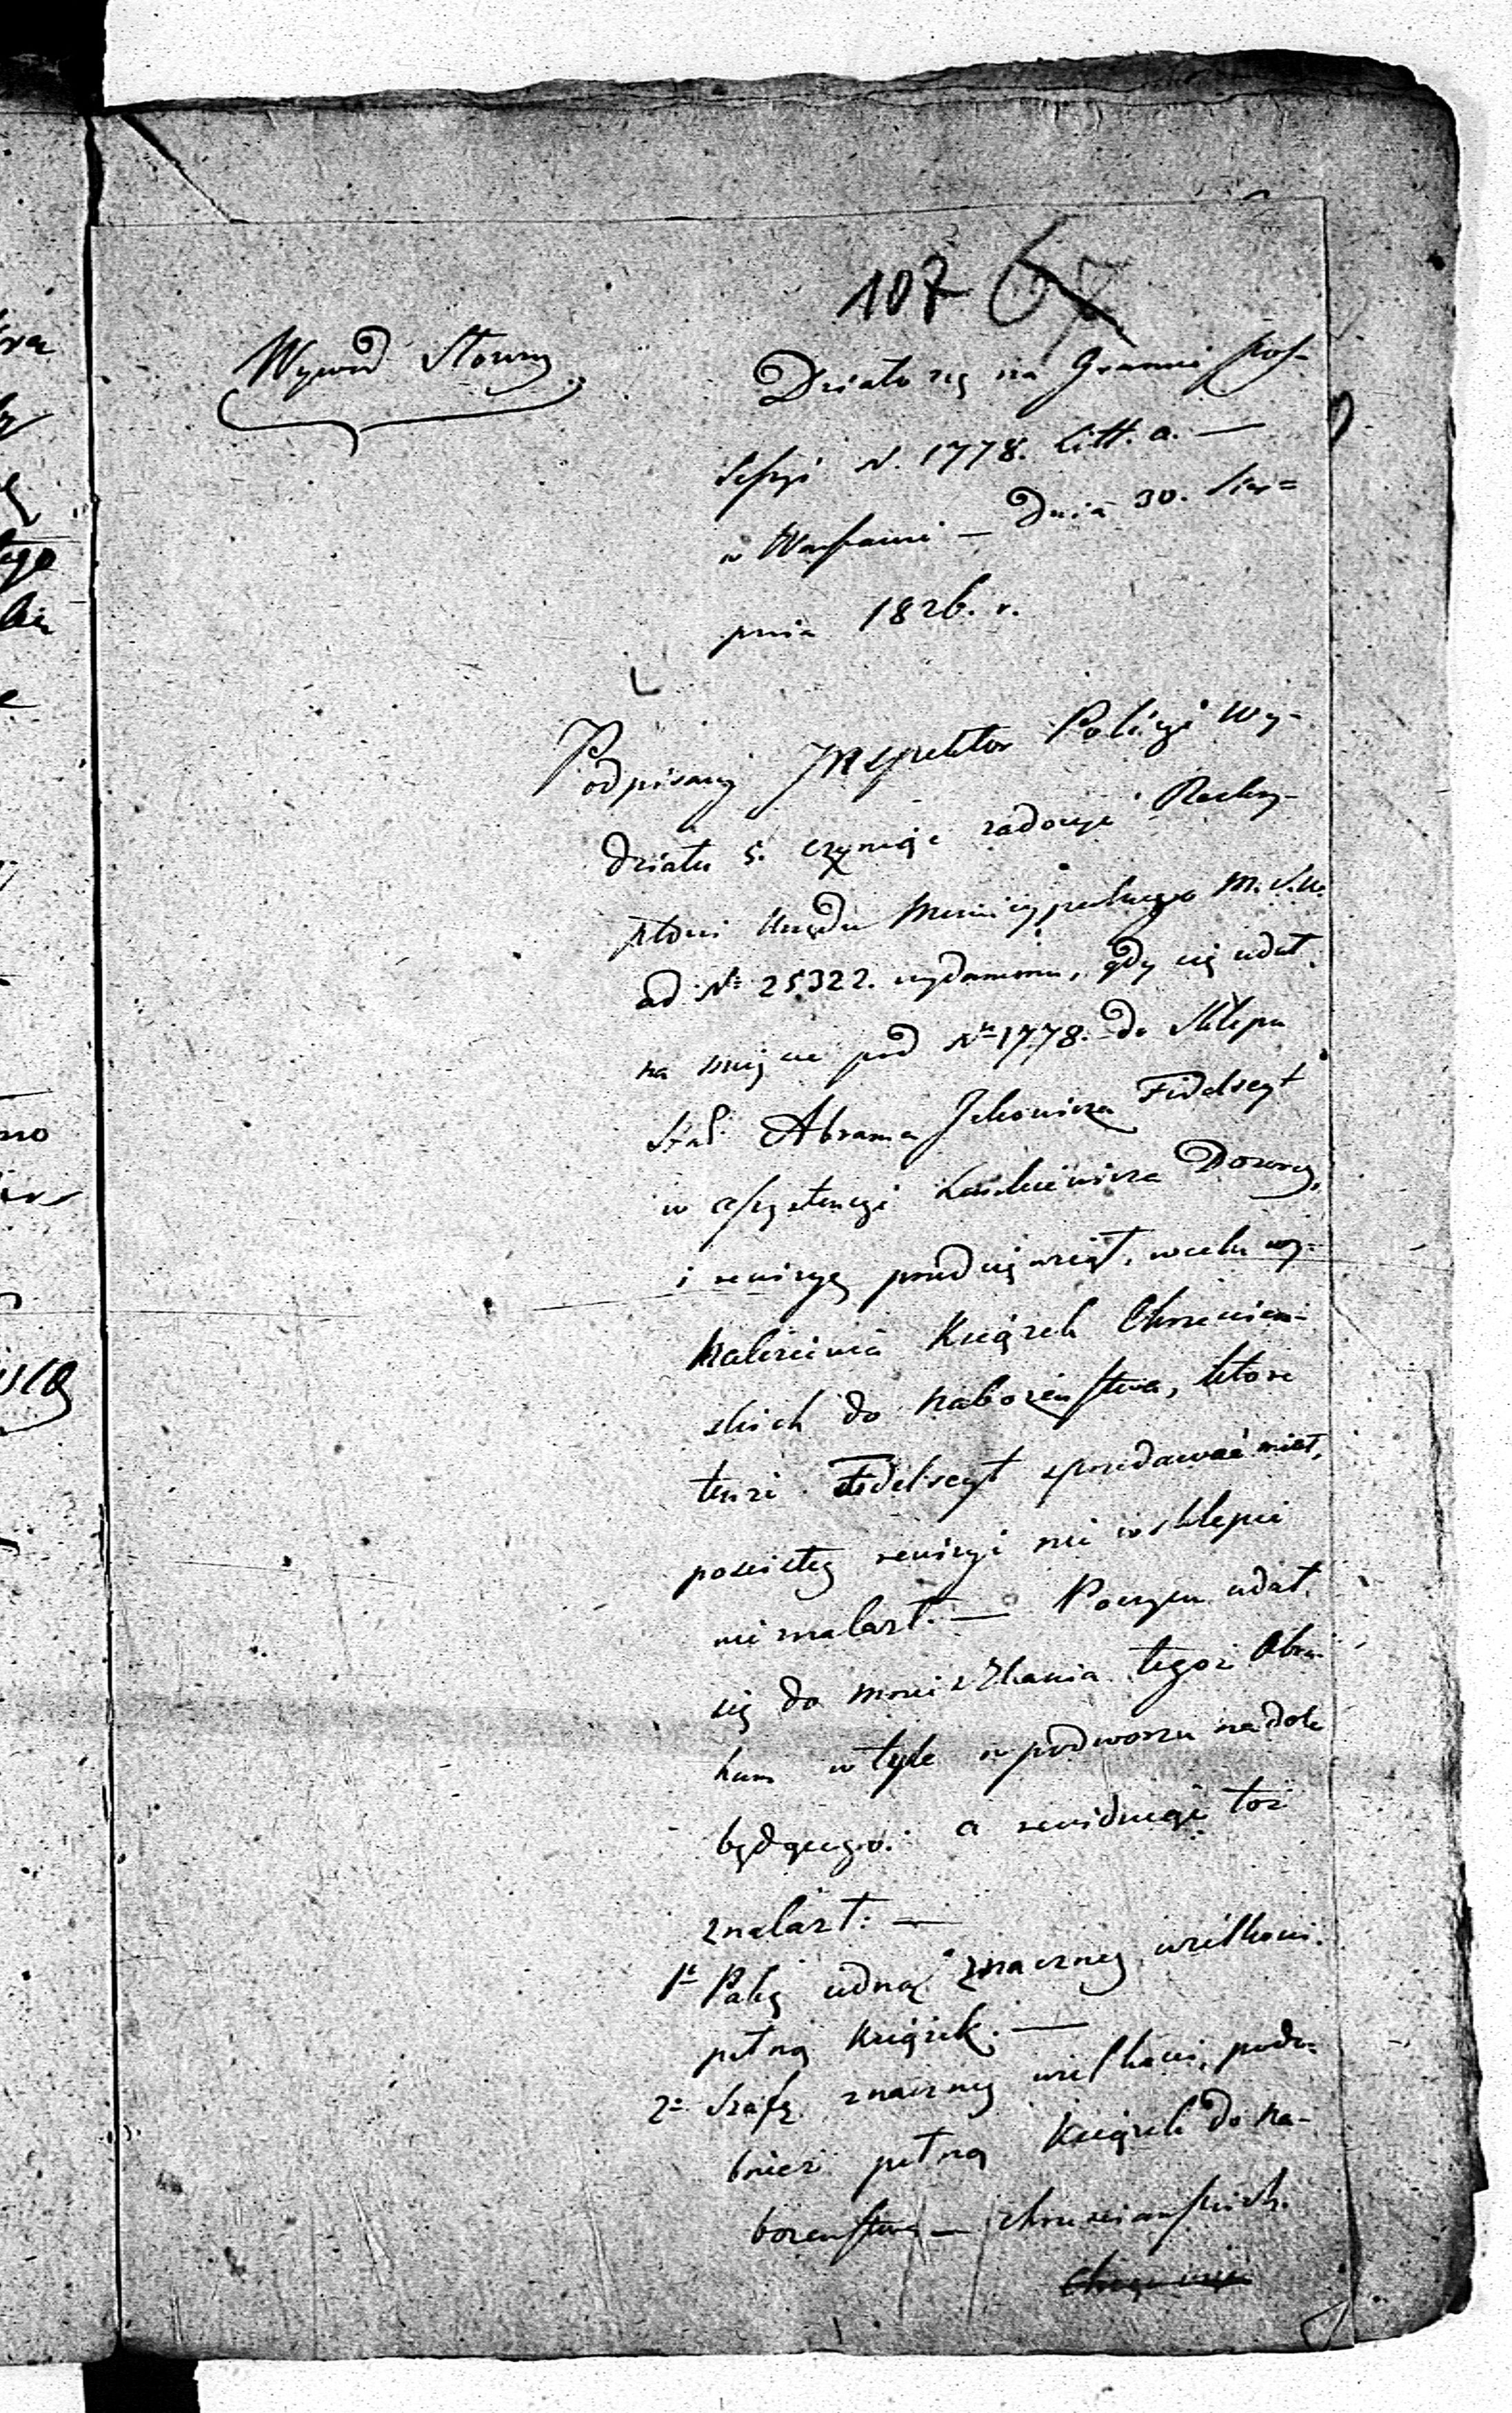 107 67
Wywod Słowny
Działo się na Grunci Pos-
sesyi N. 1778. Litt. a. —
w Warszawie — Dnia 30. Sier=
pnia 1826. r.
Podpisany Inspektor Policyi Wy-
działu 5. czyniąc zadosyć Rezkry-
ptowi Urzędu Municypalnego M. S. W.
ad Nr 25322. wydanemu, gdy się udał
na miejsce pod Nr 1778. do Sklepu
Star. Abrama Jckowicza Fidelseyt
w assystencyi Dozorcy,
i rewizyę przedsięwziął, w celu wy-
nalezienia Książek Chrzecian-
skich do Nabożeństwa, które
tenże Fidelseyt sprzedawać miał,
po ścisłey rewizyi nic w sklepie
nie znalazł. — Poczym udał
się do mieszkania tegoż Abra-
hama w tyle w podworzu na dole
będącego. a rewidując toż
znalazł: —
1o Pakę iedną znaczney wielkości
pełną Książek. —
2o Szafę znaczney wielkości, podo-
bnież pełną Książek do na-
bożeństwa — chrześcianskich.